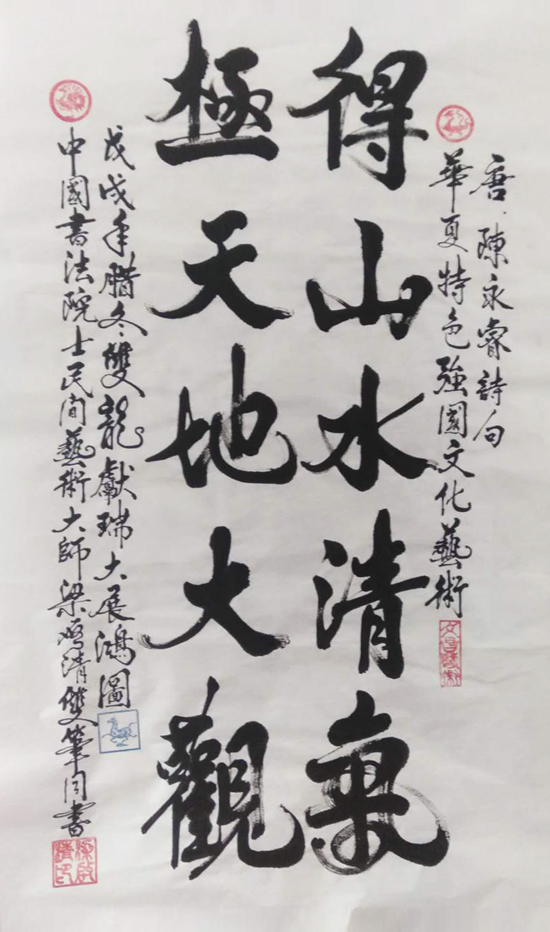 唐·陳永睿詩句
華夏特色強國文化藝術
得山水清氣
極天地大觀
戊戌年腊冬雙龍獻瑞大展鴻圖
中國書法院士民間藝術大師梁鸣清雙筆同書